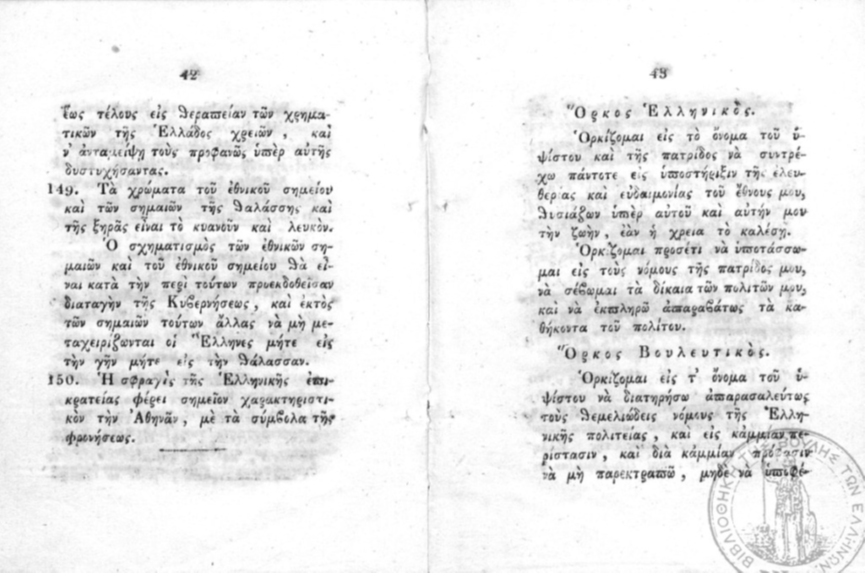 42
ἕως τέλους εἰς θεραπείαν τῶν χρημα-
τικῶν τῆς Ἑλλάδος χρειῶν, καὶ
ν' ἀνταμείψῃ τοὺς προφανῶς ὑπὲρ αὐτῆς
δυστυχήσαντας.
149. Τὰ χρώματα τοῦ ἐθνικοῦ σημείου
καὶ τῶν σημαιῶν τῆς θαλάσσης καὶ
τῆς ξηρᾶς εἶναι τὸ κυανοῦν καὶ λευκόν.
Ὁ σχηματισμὸς τῶν ἐθνικῶν ση-
μαιῶν καὶ τοῦ ἐθνικοῦ σημείου θὰ εἶ-
ναι κατὰ τὴν περὶ τούτων προεκδοθεῖσαν
διαταγὴν τῆς Κυβερνήσεως, καὶ ἐκτὸς
τῶν σημαιῶν τούτων ἄλλας νὰ μὴ με-
ταχειρίζωνται οἱ Ἕλληνες μήτε εἰς
τὴν γῆν μήτε εἰς τὴν θάλασσαν.
150. Ἡ σφραγὶς τῆς Ἑλληνικῆς ἐπι-
κρατείας φέρει σημεῖον χαρακτηριστι-
κὸν τὴν Ἀθηνᾶν, μὲ τὰ σύμβολα τῆς
φρονήσεως.
43
Ὅρκος Ἑλληνικός.
Ὁρκίζομαι εἰς τὸ ὄνομα τοῦ ὑ-
ψίστου καὶ τῆς πατρίδος νὰ συντρέ-
χω πάντοτε εἰς ὑποστήριξιν τῆς ἐλευ-
θερίας καὶ εὐδαιμονίας τοῦ ἔθνους μου,
θυσιάζων ὑπὲρ αὐτοῦ καὶ αὐτήν μου
τὴν ζωὴν, ἐὰν ἡ χρεία τὸ καλέσῃ.
Ὁρκίζομαι προσέτι νὰ ὑποτάσσω-
μαι εἰς τοὺς νόμους τῆς πατρίδος μου,
νὰ σέβωμαι τὰ δίκαια τῶν πολιτῶν μου,
καὶ νὰ ἐκπληρῶ ἀπαραβάτως τὰ κα-
θήκοντα τοῦ πολίτου.
Ὅρκος Βουλευτικός.
Ὁρκίζομαι εἰς τ' ὄνομα τοῦ ὑ-
ψίστου νὰ διατηρήσω ἀπαρασαλεύτως
τοὺς θεμελιώδεις νόμους τῆς Ἑλλη-
νικῆς πολιτείας, καὶ εἰς κἀμμίαν πε-
ρίστασιν, καὶ διὰ κἀμμίαν πρόφασιν
νὰ μὴ παρεκτραπῶ, μηδὲ νὰ ὑποφέ-
ΒΙΒΛΙΟΘΗΚΗ ΤΗΣ ΒΟΥΛΗΣ ΤΩΝ ΕΛΛΗΝΩΝ